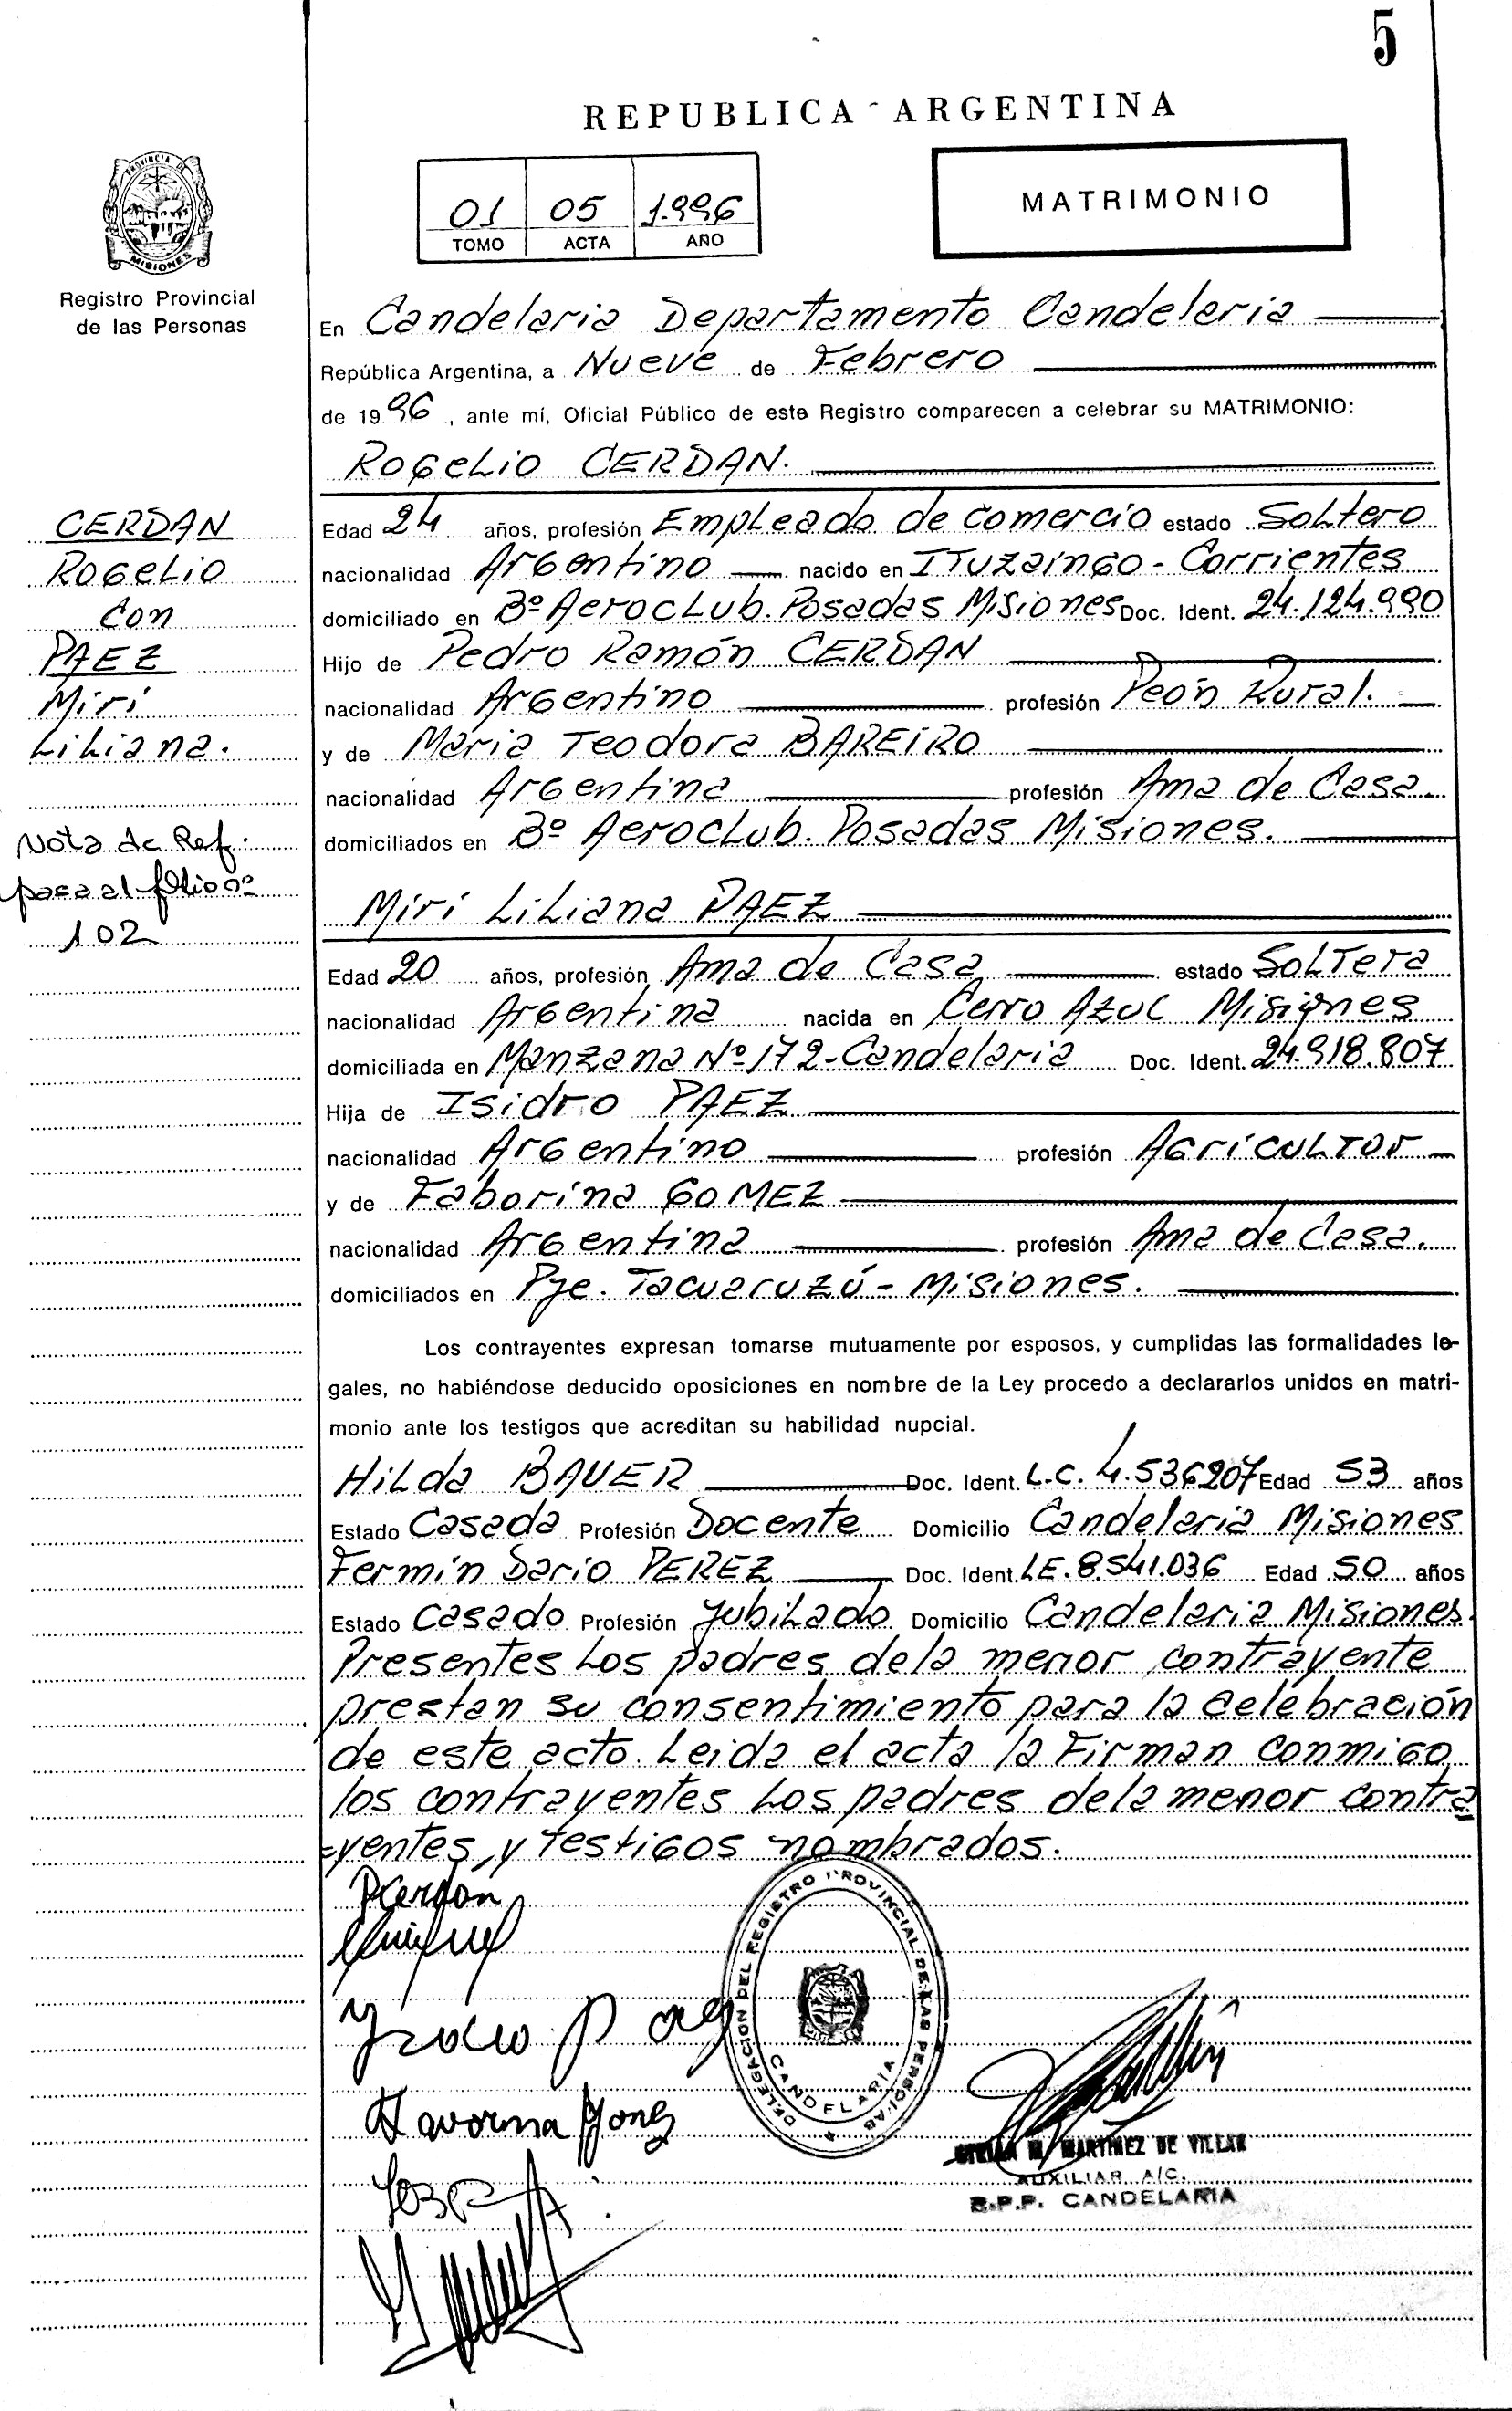 5
REPUBLICA ARGENTINA
PROVINCIA DE
MISIONES
Registro Provincial
de las Personas
01 05 1.996
TOMO ACTA AÑO
MATRIMONIO
En Candelaria Departamento Candelaria
República Argentina, a Nueve de Febrero
de 1996, ante mí, Oficial Público de este Registro comparecen a celebrar su MATRIMONIO:
Rogelio CERDAN.
CERDAN
Rogelio
con
PAEZ
Miri
Liliana.
Nota de Ref.
pasa al folio nº
102
Edad 24 años, profesión Empleado de comercio estado Soltero
nacionalidad Argentino nacido en ITuzaingo - Corrientes
domiciliado en Bº Aeroclub. Posadas Misiones Doc. Ident. 24.124.990
Hijo de Pedro Ramón CERDAN
nacionalidad Argentino profesión Peón Rural.
y de Maria Teodora BAREIRO
nacionalidad Argentina profesión Ama de Casa.
domiciliados en Bº Aeroclub. Posadas Misiones.
Miri Liliana PAEZ
Edad 20 años, profesión Ama de Casa estado Soltera
nacionalidad Argentina nacida en Cerro Azul Misiones
domiciliada en Manzana Nº 172-Candelaria Doc. Ident. 24.918.807
Hija de Isidro PAEZ
nacionalidad Argentino profesión Agricultor
y de Faborina GOMEZ
nacionalidad Argentina profesión Ama de Casa.
domiciliados en Pje. Tacuaruzú - Misiones.
Los contrayentes expresan tomarse mutuamente por esposos, y cumplidas las formalidades le-
gales, no habiéndose deducido oposiciones en nombre de la Ley procedo a declararlos unidos en matri-
monio ante los testigos que acreditan su habilidad nupcial.
Hilda BAUER Doc. Ident. L.C. 4.536207 Edad 53 años
Estado Casada Profesión Docente Domicilio Candelaria Misiones
Fermin Dario PEREZ Doc. Ident. LE. 8.541.036 Edad 50 años
Estado Casado Profesión Jubilado Domicilio Candelaria Misiones.
Presentes los padres de la menor contrayente
prestan su consentimiento para la celebración
de este acto. Leida el acta la Firman conmigo
los contrayentes Los padres de la menor contra
=yentes, y testigos nombrados.
DELEGACION DEL REGISTRO PROVINCIAL DE LAS PERSONAS
CANDELARIA
M. MARTINEZ DE VILLAR
AUXILIAR A/C.
R.P.P. CANDELARIA